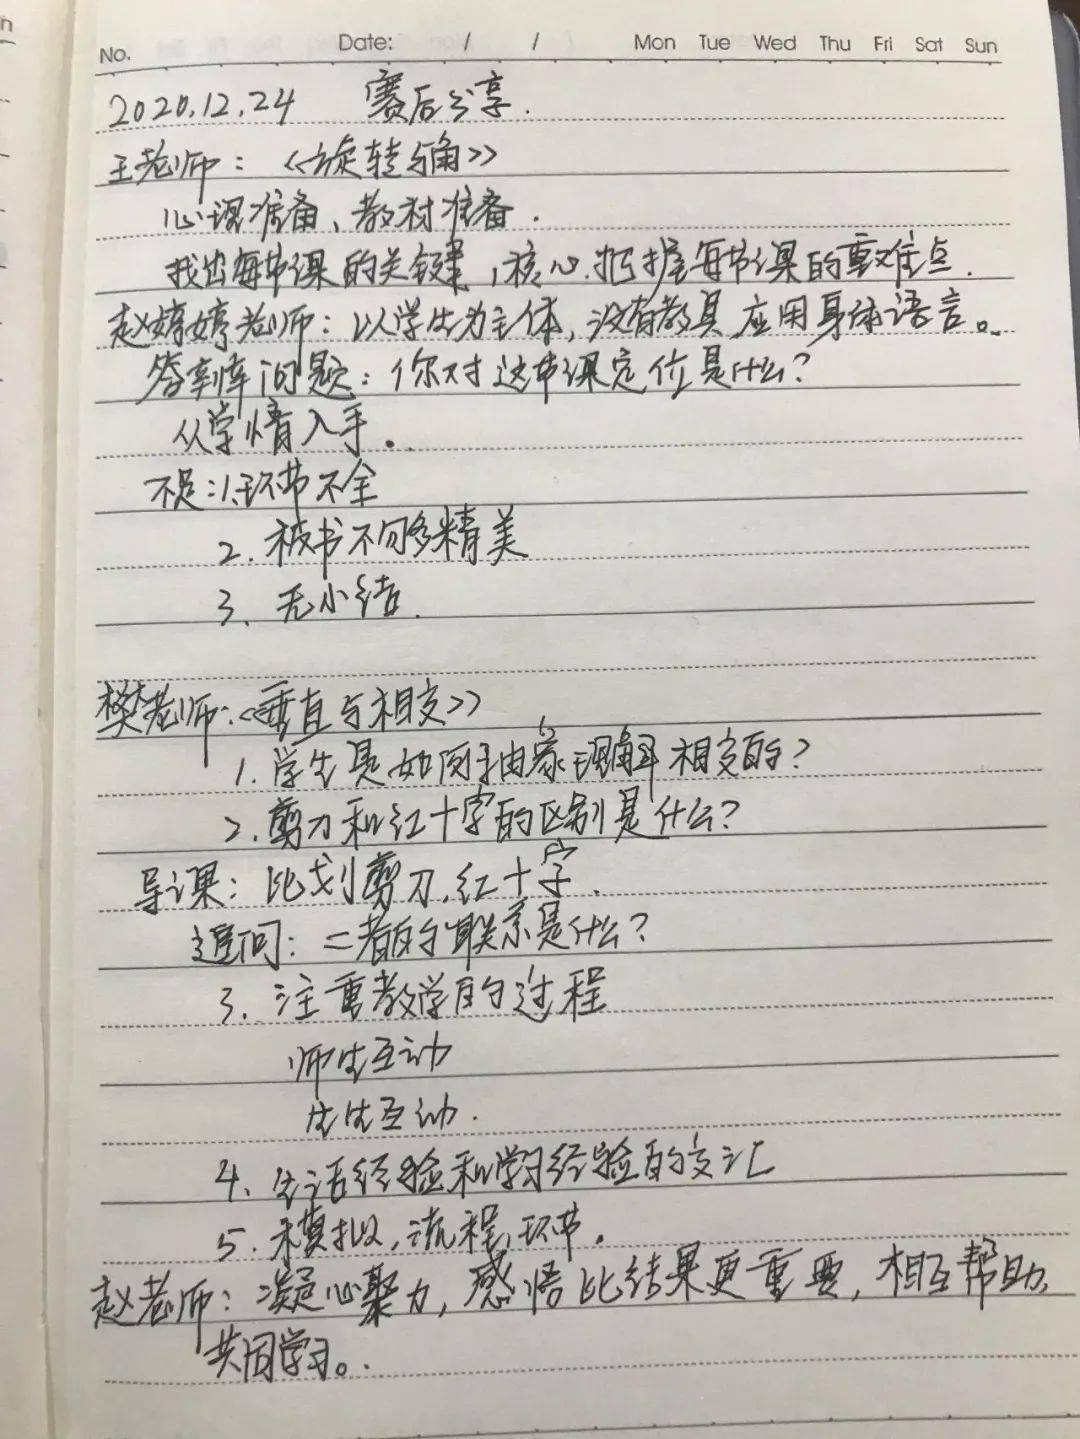 No. Date: / / Mon Tue Wed Thu Fri Sat Sun
2020.12.24 赛后分享.
王老师：《旋转与角》
心理准备、教材准备.
找出每节课的关键，核心.把握每节课的重难点.
赵婷婷老师：以学生为主体，没有教具应用身体语言。
答辩问题：你对这节课定位是什么？
从学情入手.
不足：1.环节不全
2.板书不够精美
3、无小结.
樊老师：《垂直与相交》
1.学生是如何抽象理解相交的？
2.剪刀和红十字的区别是什么？
导课：比划剪刀，红十字.
追问：二者的联系是什么？
3、注重教学的过程
师生互动
生生互动.
4、生活经验和学习经验的交汇
5.模拟，流程，环节.
赵老师：凝心聚力，感悟比结果更重要，相互帮助，
共同学习。